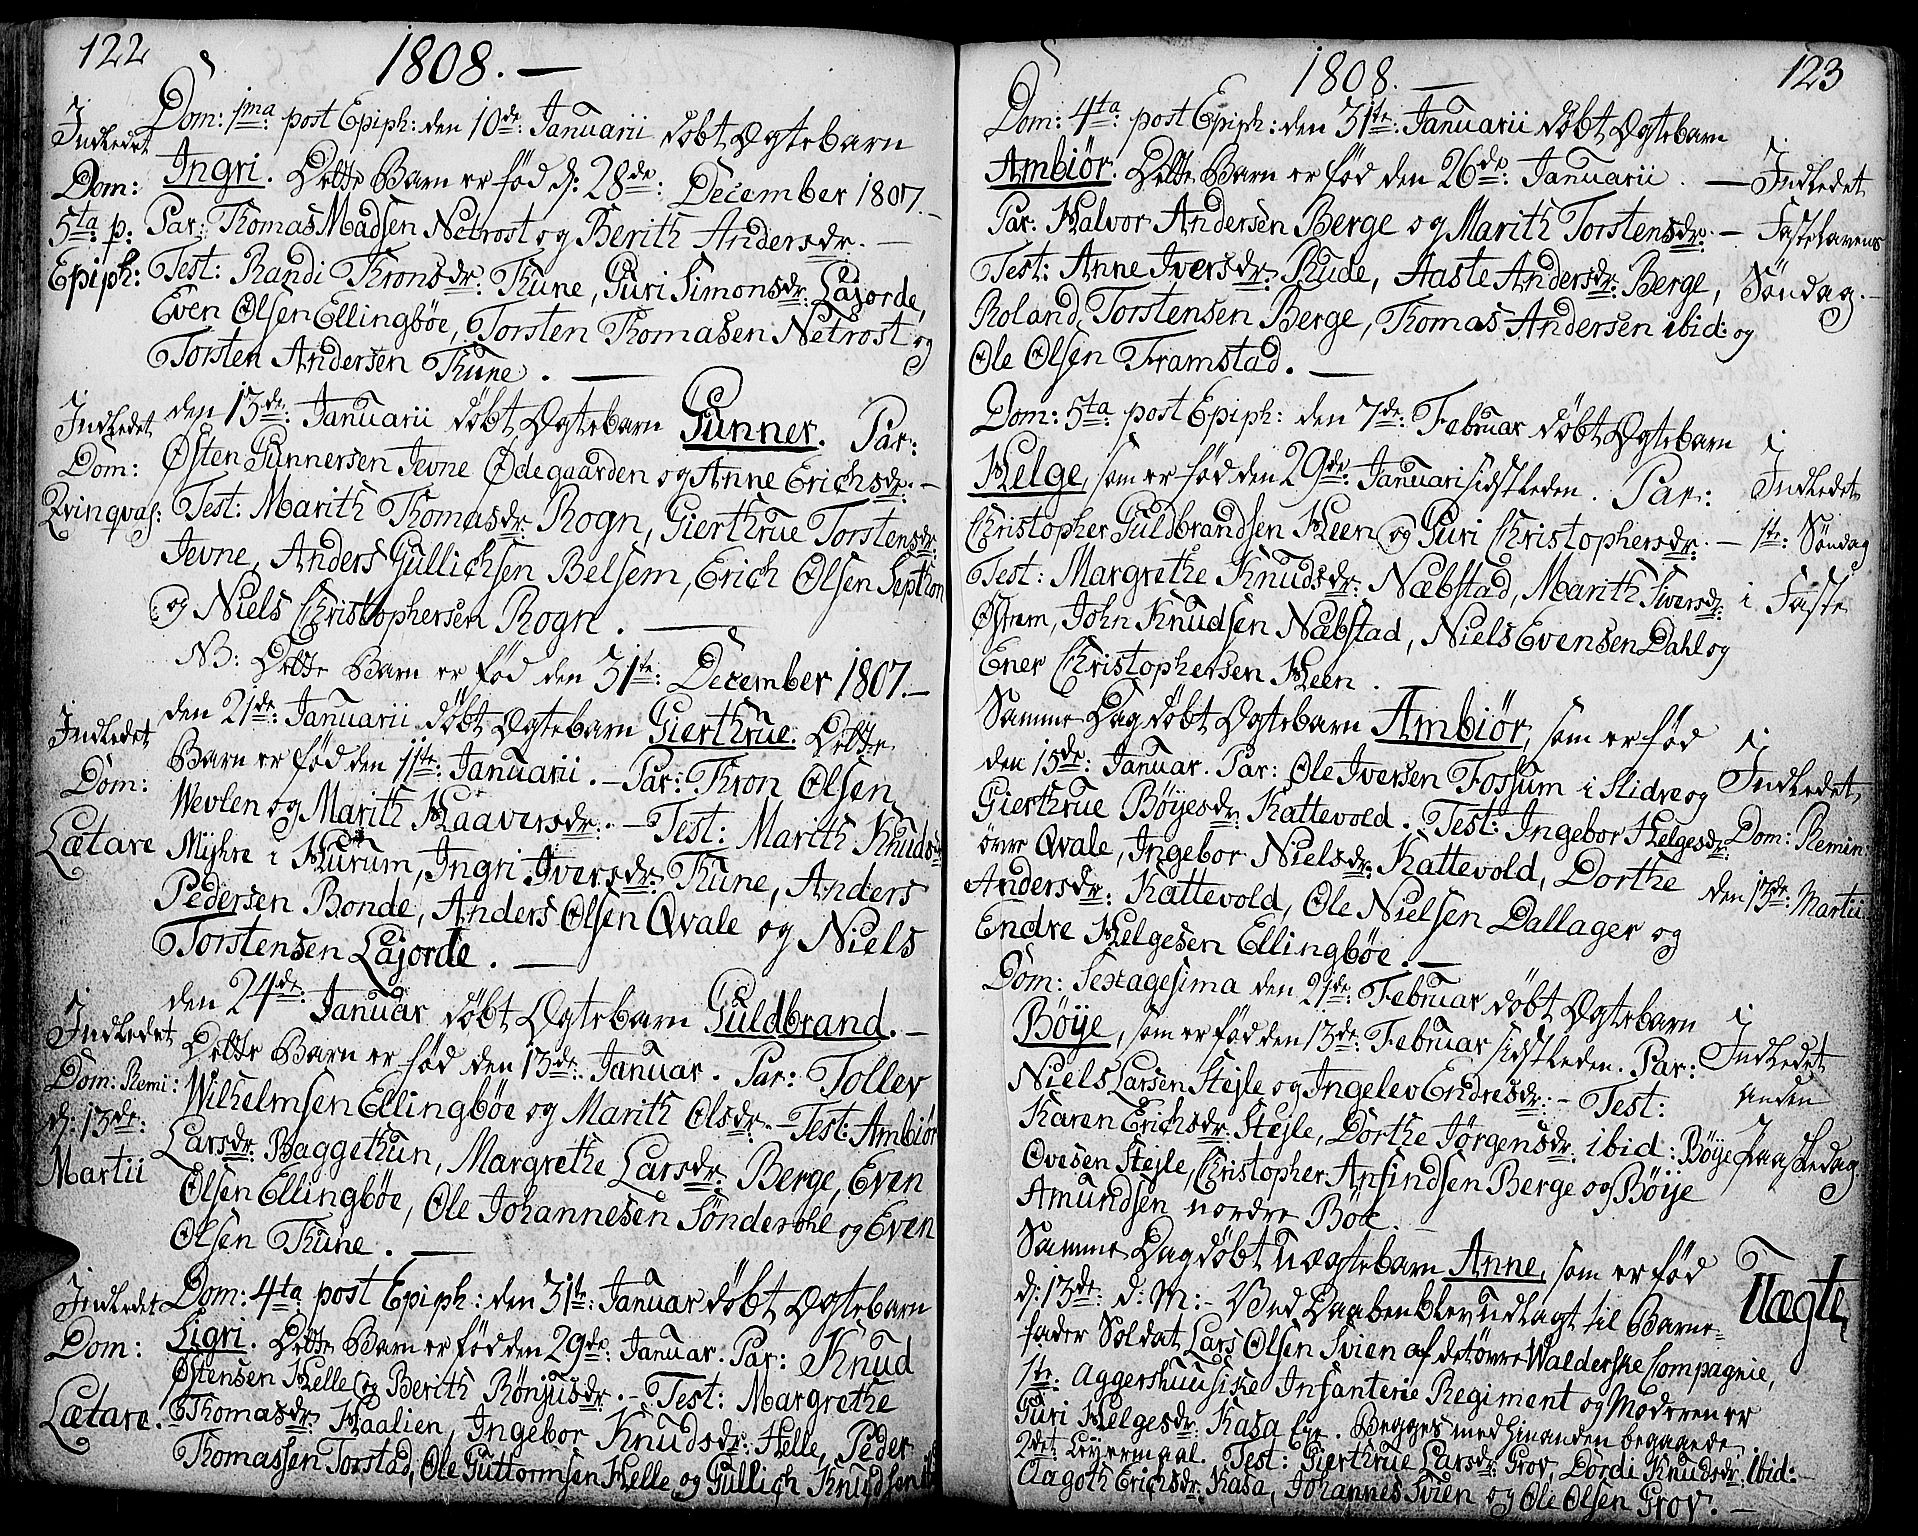 122
1808. —
Indledet
Dom:
5ta: p:
Epiph:
Dom: 1ma: post Epiph: den 10de: Januarii døbt Ægtebarn
Ingri. Dette Barn er fød d: 28de: December 1807. —
Par: Thomas Madsen Netrost og Berith Andersdr. —
Test: Randi Thronsdr: Thune, Guri Simonsdr: Lajorde,
Even Olsen Ellingbøe, Torsten Thomasen Netrost og
Torsten Andersen Thune. —
Indledet
Dom:
Qvinqvas:
den 13de: Januarii døbt Ægtebarn Gunner. Par:
Østen Gunnersen Jevne Ødegaarden og Anne Erichsdr. —
Test: Marith Thomasdr: Rogn, Gierthrue Torstensdr:
Jevne, Anders Gullichsen Belsem, Erich Olsen Septhon
og Niels Christophersen Rogn. —
NB: Dette Barn er fød den 31te: December 1807. —
Indledet
Dom:
Lætare
den 21de: Januarii døbt Ægtebarn Gierthrue. Dette
Barn er fød den 11te: Januarii. — Par: Thron Olsen
Wevlen og Marith Haaversdr. — Test: Marith Knudsdr
Myhre i Hurum, Ingri Iversdr: Thune, Anders
Pedersen Bonde, Anders Olsen Qvale og Niels
Torstensen Lajorde. —
Indledet
Dom: Remi:
d: 13de:
Martii
den 24de: Januar døbt Ægtebarn Guldbrand. —
Dette Barn er fød den 13de: Januar. Par: Tollev
Wilhelmsen Ellingbøe og Marith Olsdr. — Test: Ambiør
Larsdr: Baggethun, Margrethe Larsdr: Berge, Even
Olsen Ellingbøe, Ole Johannesen Sønderohl og Even
Olsen Thune. —
Indledet
Dom:
Lætare.
Dom: 4ta post Epiph: den 31te: Januar døbt Ægtebarn
Sigri. Dette Barn er fød den 29de: Januar. Par: Knud
Østensen Helle og Berith Rønjusdr. — Test: Margrethe
Thomasdr: Haalien, Ingebor Knudsdr: Helle, Peder
Thomassen Torstad, Ole Guttormsen Helle og Gullich Knudsen ib
123
1808. —
Dom: 4ta: post Epiph: den 31te: Januarii døbt Ægtebarn
Ambiör. Dette Barn er fød den 26de: Januarii. —
Par: Halvor Andersen Berge og Marith Torstensdr. —
Test: Anne Iversdr: Rude, Aaste Andersdr: Berge,
Roland Torstensen Berge, Thomas Andersen ibid: og
Ole Olsen Framstad. —
Indledet
Fastelavens
Søndag. —
Dom: 5ta post Epiph: den 7de: Februar døbt Ægtebarn
Helge, som er fød den 29de: Januari sidstleden. Par:
Christopher Guldbrandsen Heen og Guri Christophersdr. —
Test: Margrethe Knudsdr: Næbstad, Marith Iversdr:
Østrem, John Knudsen Næbstad, Niels Evensen Dahl og
Ener Christophersen Heen.
Indledet
1te: Søndag
i Faste
Samme Dag døbt Ægtebarn Ambiør, som er fød
den 15de: Januar. Par: Ole Iversen Fossum i Slidre og
Gierthrue Bøyesdr: Kattevold. Test: Ingebor Helgesdr:
øvre Qvale, Ingebor Nielsdr: Kattevold, Dorthe
Andersdr: Kattevold, Ole Nielsen Dallager og
Endre Helgesen Ellingbøe. —
Indledet
Dom: Remin:
den 13de: Martii
Dom: Sexagesima den 21de: Februar døbt Ægtebarn
Bøye, som er fød den 13de: Februar sidstleden. Par:
Niels Larsen Stejle og Ingelev Endresdr: — Test:
Karen Erichsdr: Stejle, Dorthe Jørgensdr: ibid: Bøye
Ovesen Stejle, Christopher Ansindsen Berge og Bøye
Amundsen nordre Böe. —
Indledet
anden
Paaskedag
Samme Dag døbt Uægtebarn Anne, som er fød
d: 13de: d: M: — Ved Daaben blev udlagt til Barne-
fader Soldat Lars Olsen Svien af det øvre Walderske Compagnie,
1te: Aggershuusiske Infanterie Regiment og Moderen er
Guri Helgesdr: Kasa Eje. Begges med hinanden begaaede
2det Leyermaal. Test: Gierthrue Larsdr: Grov, Dordi Knudsdr: ibid: —
Aagoth Erichsdr: Kasa, Johannes Svien og Ole Olsen Grov. —
Uægte